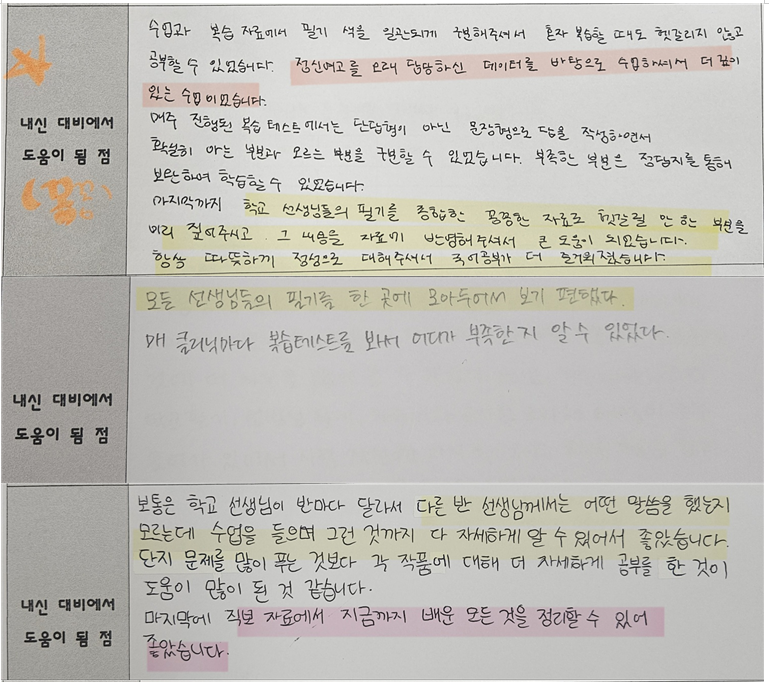 수업과 복습 자료에서 필기 색을 일관되게 구분해주셔서 혼자 복습할 때도 헷갈리지 않고
공부할 수 있었습니다. 정신여고를 오래 담당하신 데이터를 바탕으로 수업하셔서 더 깊이
있는 수업이었습니다.
매주 진행된 복습 테스트에서는 단답형이 아닌 문장형으로 답을 작성하면서
확실히 아는 부분과 모르는 부분을 구분할 수 있었습니다. 부족한 부분은 정답지를 통해
보완하여 학습할 수 있었습니다.
마지막까지 학교 선생님들의 필기를 종합한 꼼꼼한 자료로 헷갈릴 만 한 부분을
미리 짚어주시고 그 내용을 자료에 반영해주셔서 큰 도움이 되었습니다.
항상 따뜻하게 정성으로 대해주셔서 국어공부가 더 즐거워졌습니다.
내신 대비에서
도움이 됨 점
모든 선생님들의 필기를 한 곳에 모아두어서 보기 편했다.
매 클리닉마다 복습테스트를 봐서 어디가 부족한지 알 수 있었다.
내신 대비에서
도움이 됨 점
보통은 학교 선생님이 반마다 달라서 다른 반 선생님께서는 어떤 말씀을 했는지
모르는데 수업을 들으며 그런 것까지 다 자세하게 알 수 있어서 좋았습니다.
단지 문제를 많이 푸는 것보다 각 작품에 대해 더 자세하게 공부를 한 것이
도움이 많이 된 것 같습니다.
마지막에 직보 자료에서 지금까지 배운 모든 것을 정리할 수 있어
좋았습니다.
내신 대비에서
도움이 됨 점